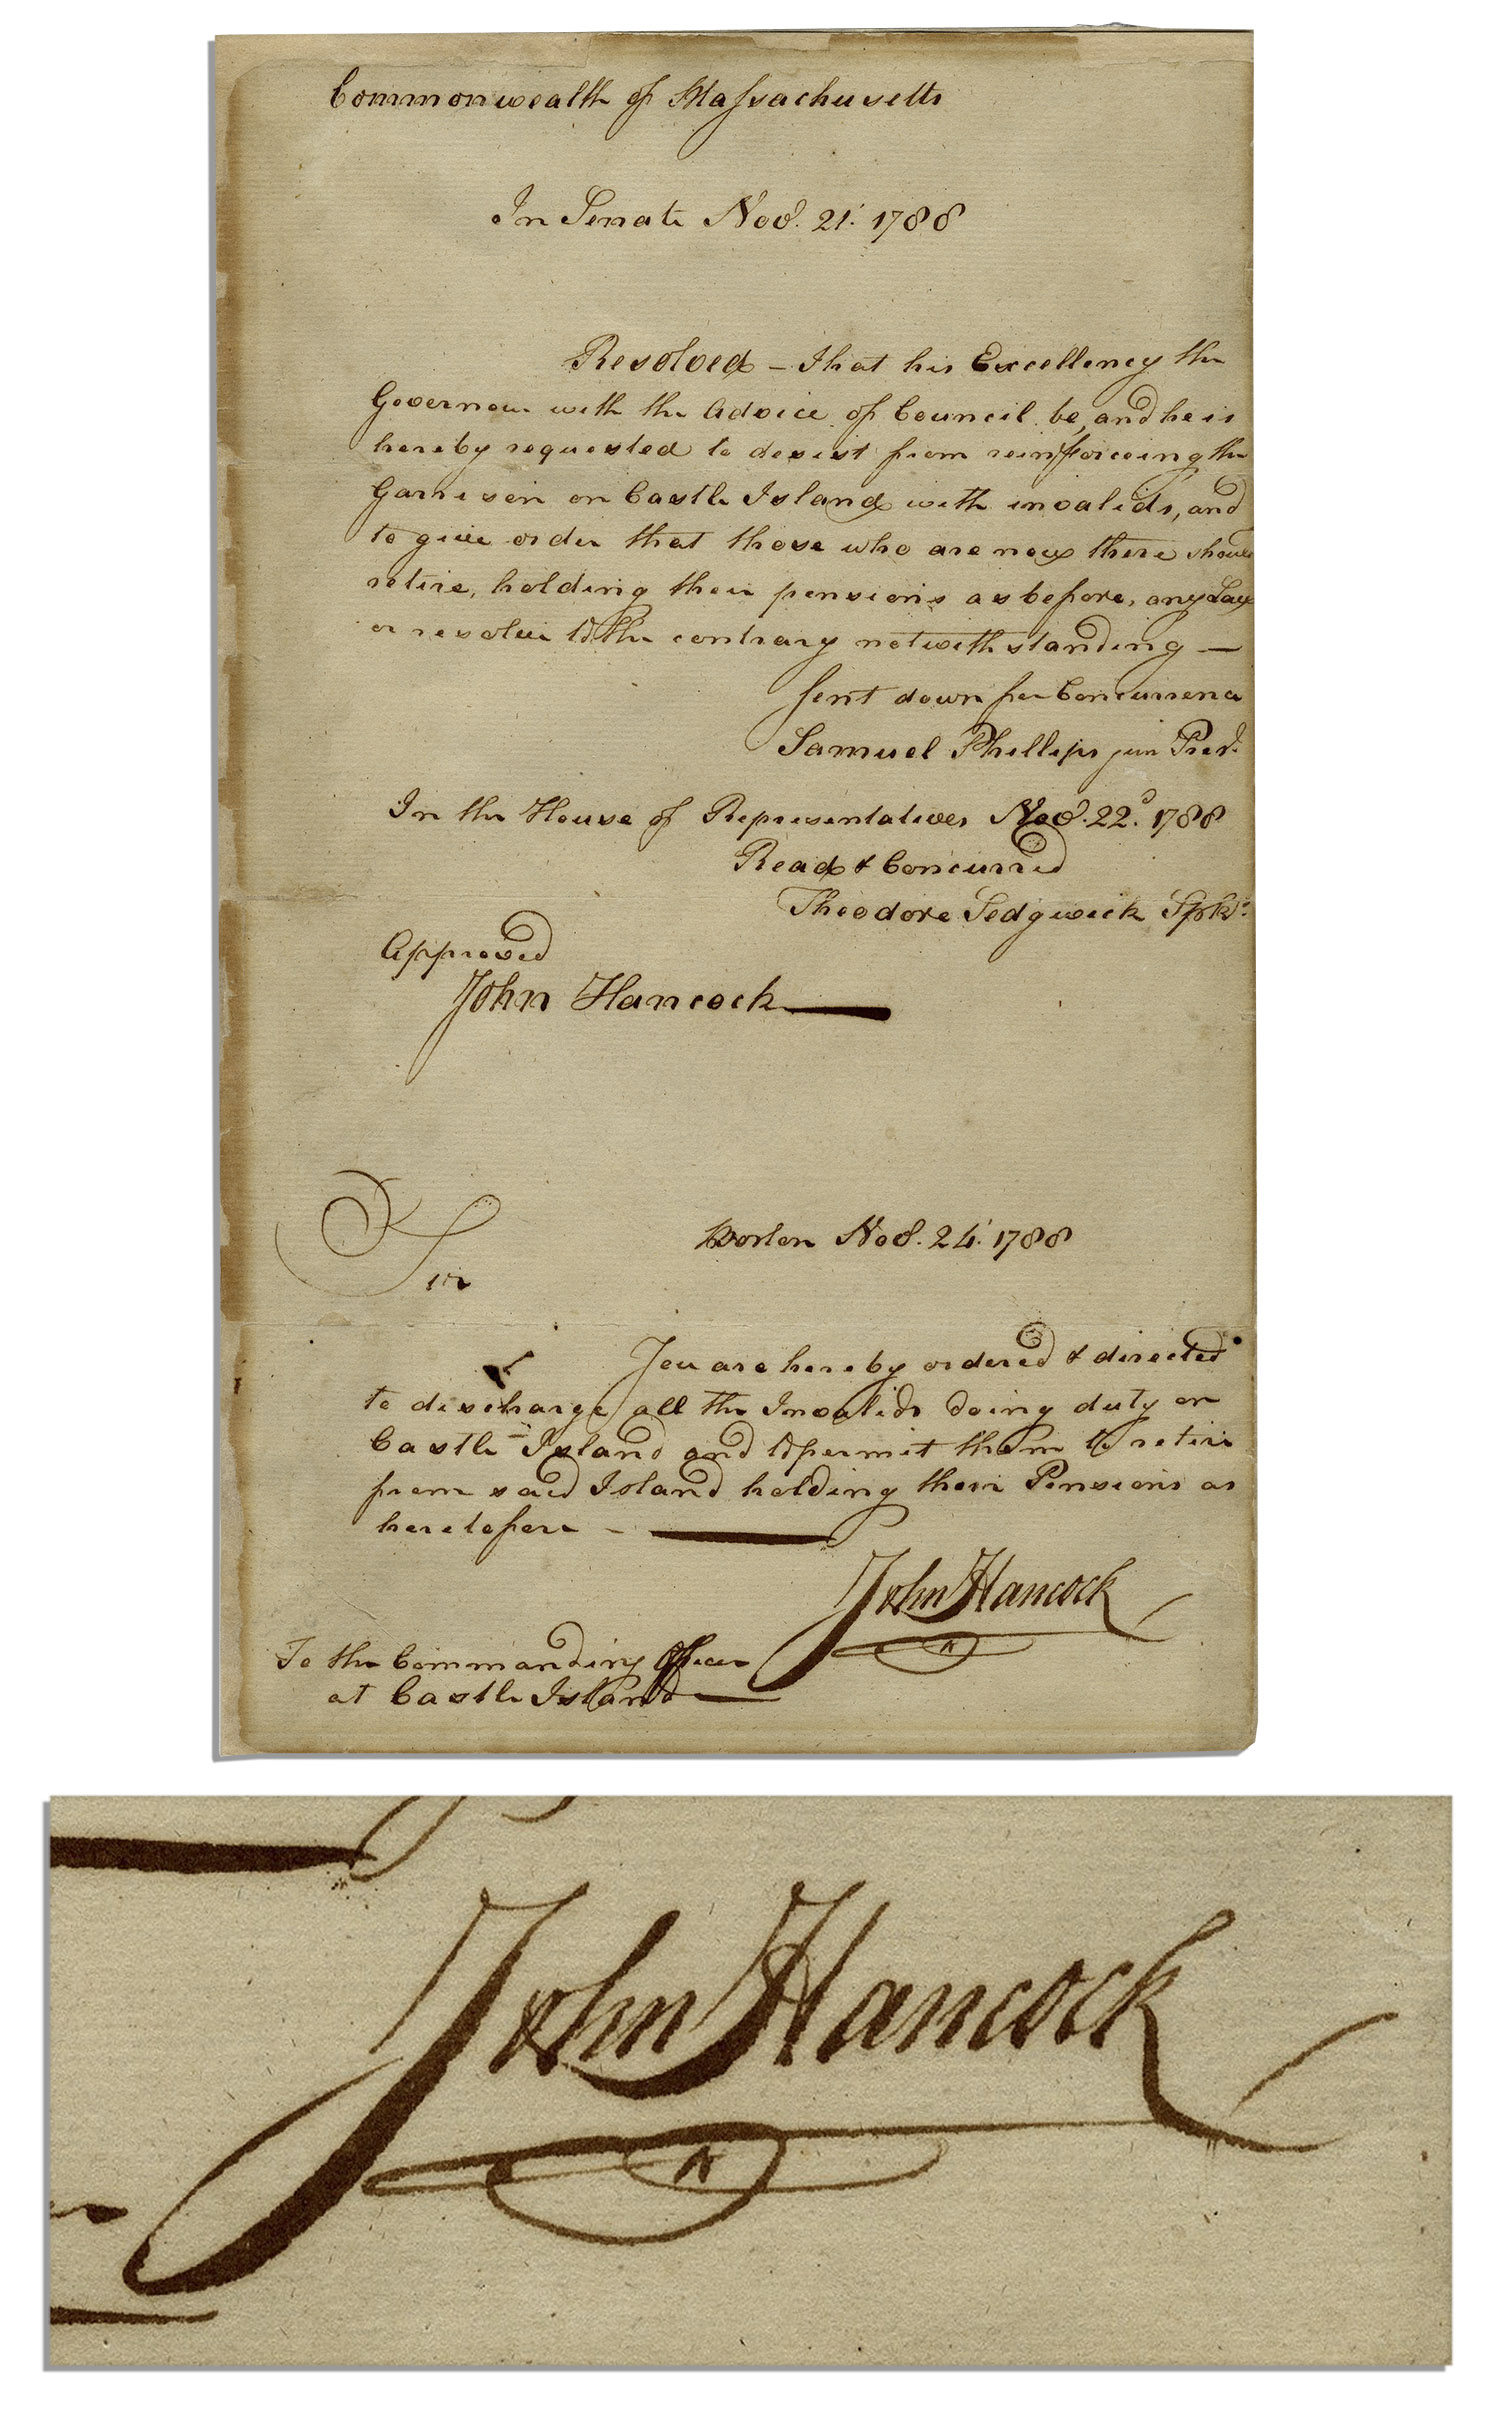 Commonwealth of Massachusetts
In Senate Nov.r 21.t 1788
Resolved – That his Excellency the
Governour with the Advice of Council be, and he is
hereby requested to desist from reinforceing the
Garrison on Castle Island with invalids, and
to give order that those who are now there should
retire, holding their pensions as before, any Law
or resolve to the contrary notwithstanding —
Sent down for Concurrence
Samuel Phillips jun Presd.t
In the House of Representatives Nov.r 22.d 1788
Read & Concurred
Theodore Sedgwick Spkr.
Approved
John Hancock
Boston Nov.r 24. 1788
Sir
You are hereby ordered & directed
to discharge all the Invalids doing duty on
Castle Island and to permit them to retire
from said Island holding their Pensions as
heretofore –
John Hancock
To the Commanding Officer
at Castle Island
John Hancock